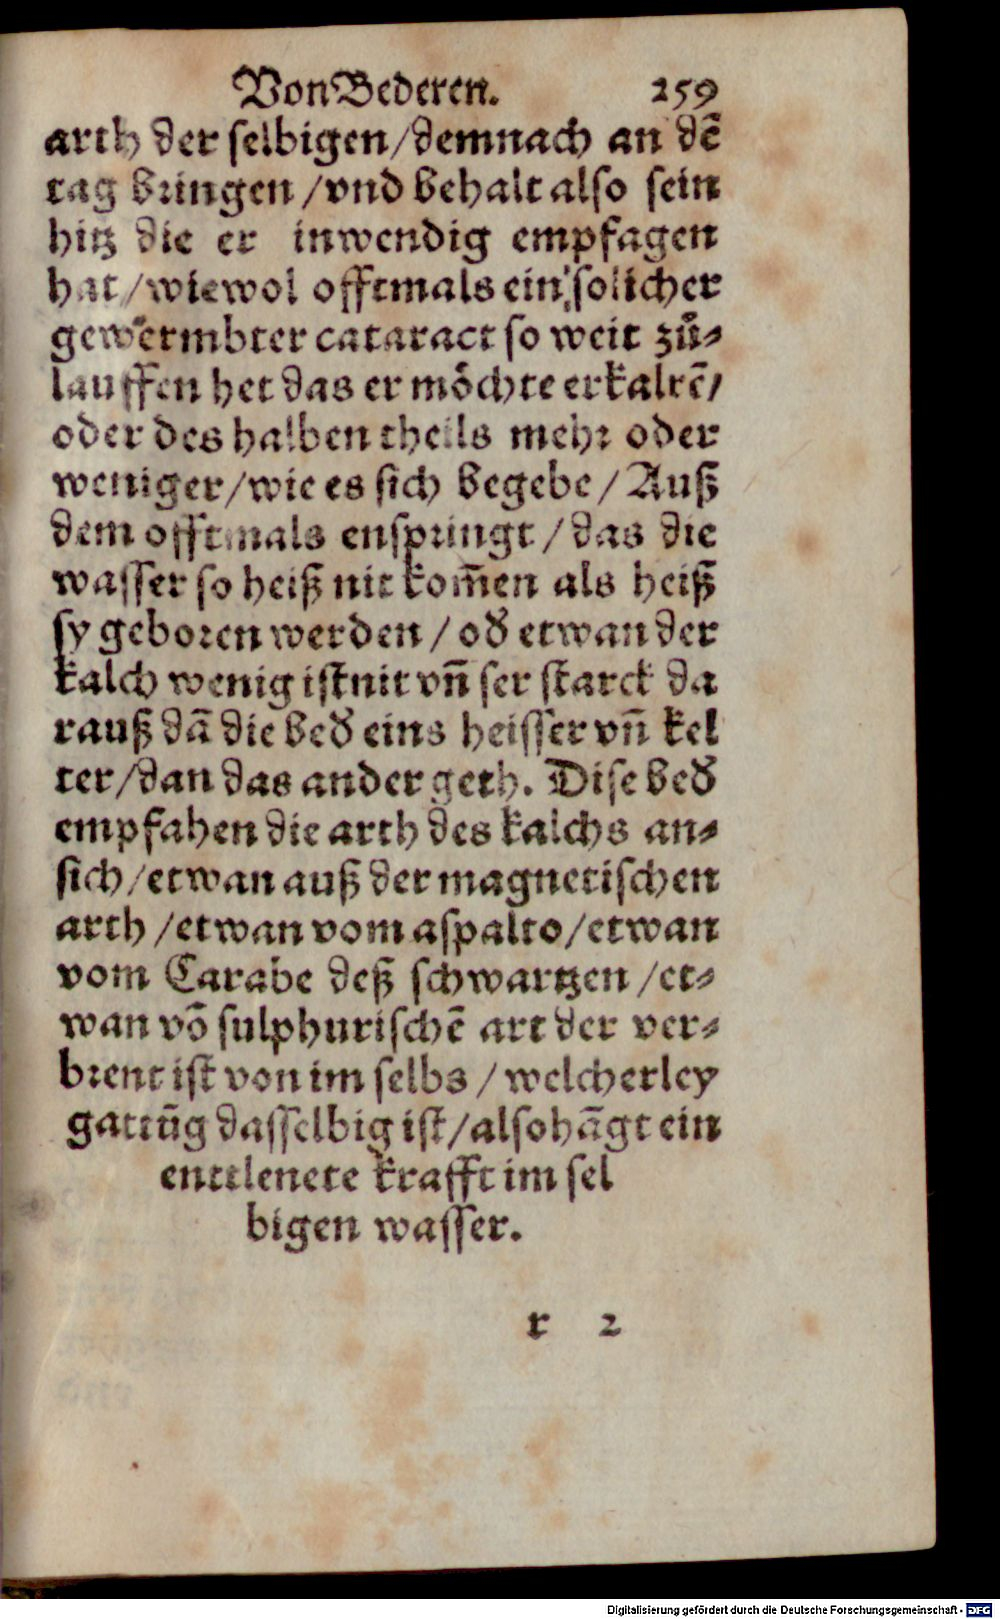 Von Bederen. 259
arth der selbigen/demnach an dẽ
tag bringen /vnd behalt also sein
hitz die er inwendig empfagen
hat/wiewol offtmals ein solicher
gewermbter cataract so weit zů-
lauffen het das er möchte erkaltẽ/
oder des halben theils mehr oder
weniger/wie es sich begebe/Auß
dem offtmals enspringt/das die
wasser so heiß nit kom̃en als heiß
sy geboren werden/od̕ etwan der
kalch wenig ist nit vñ ser starck da
rauß dã die bed̕ eins heisser vñ kel
ter/dan das ander geth. Dise bed̕
empfahen die arth des kalchs an-
sich/etwan auß der magnetischen
arth /etwan vom aspalto/etwan
vom Carabe deß schwartzen /et-
wan võ sulphurischẽ art der ver-
brent ist von im selbs /welcherley
gattũg dasselbig ist/also hãgt ein
enttlenete krafft im sel
bigen wasser.
r 2
Digitalisierung gefördert durch die Deutsche Forschungsgemeinschaft - DFG